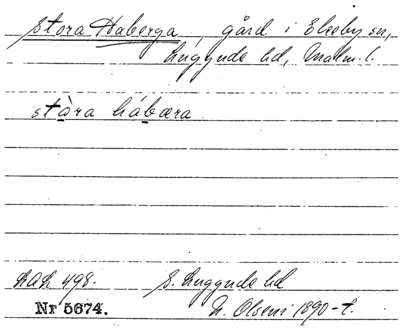 Stora Haberga, gård i Ekeby sn,
Luggude hd, Malm. l.
stàra hábæra
DAL 498. S. Luggude hd
Nr 5674. N. Olseni 1890-t.